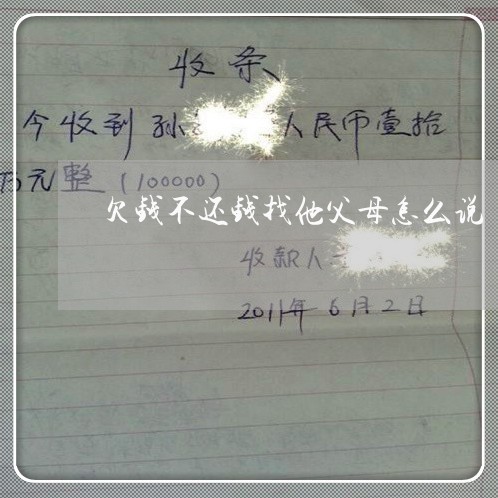 收条
今收到孙 人民币壹拾
万元整（100000）
欠钱不还钱找他父母怎么说
收款人
2011年6月2日